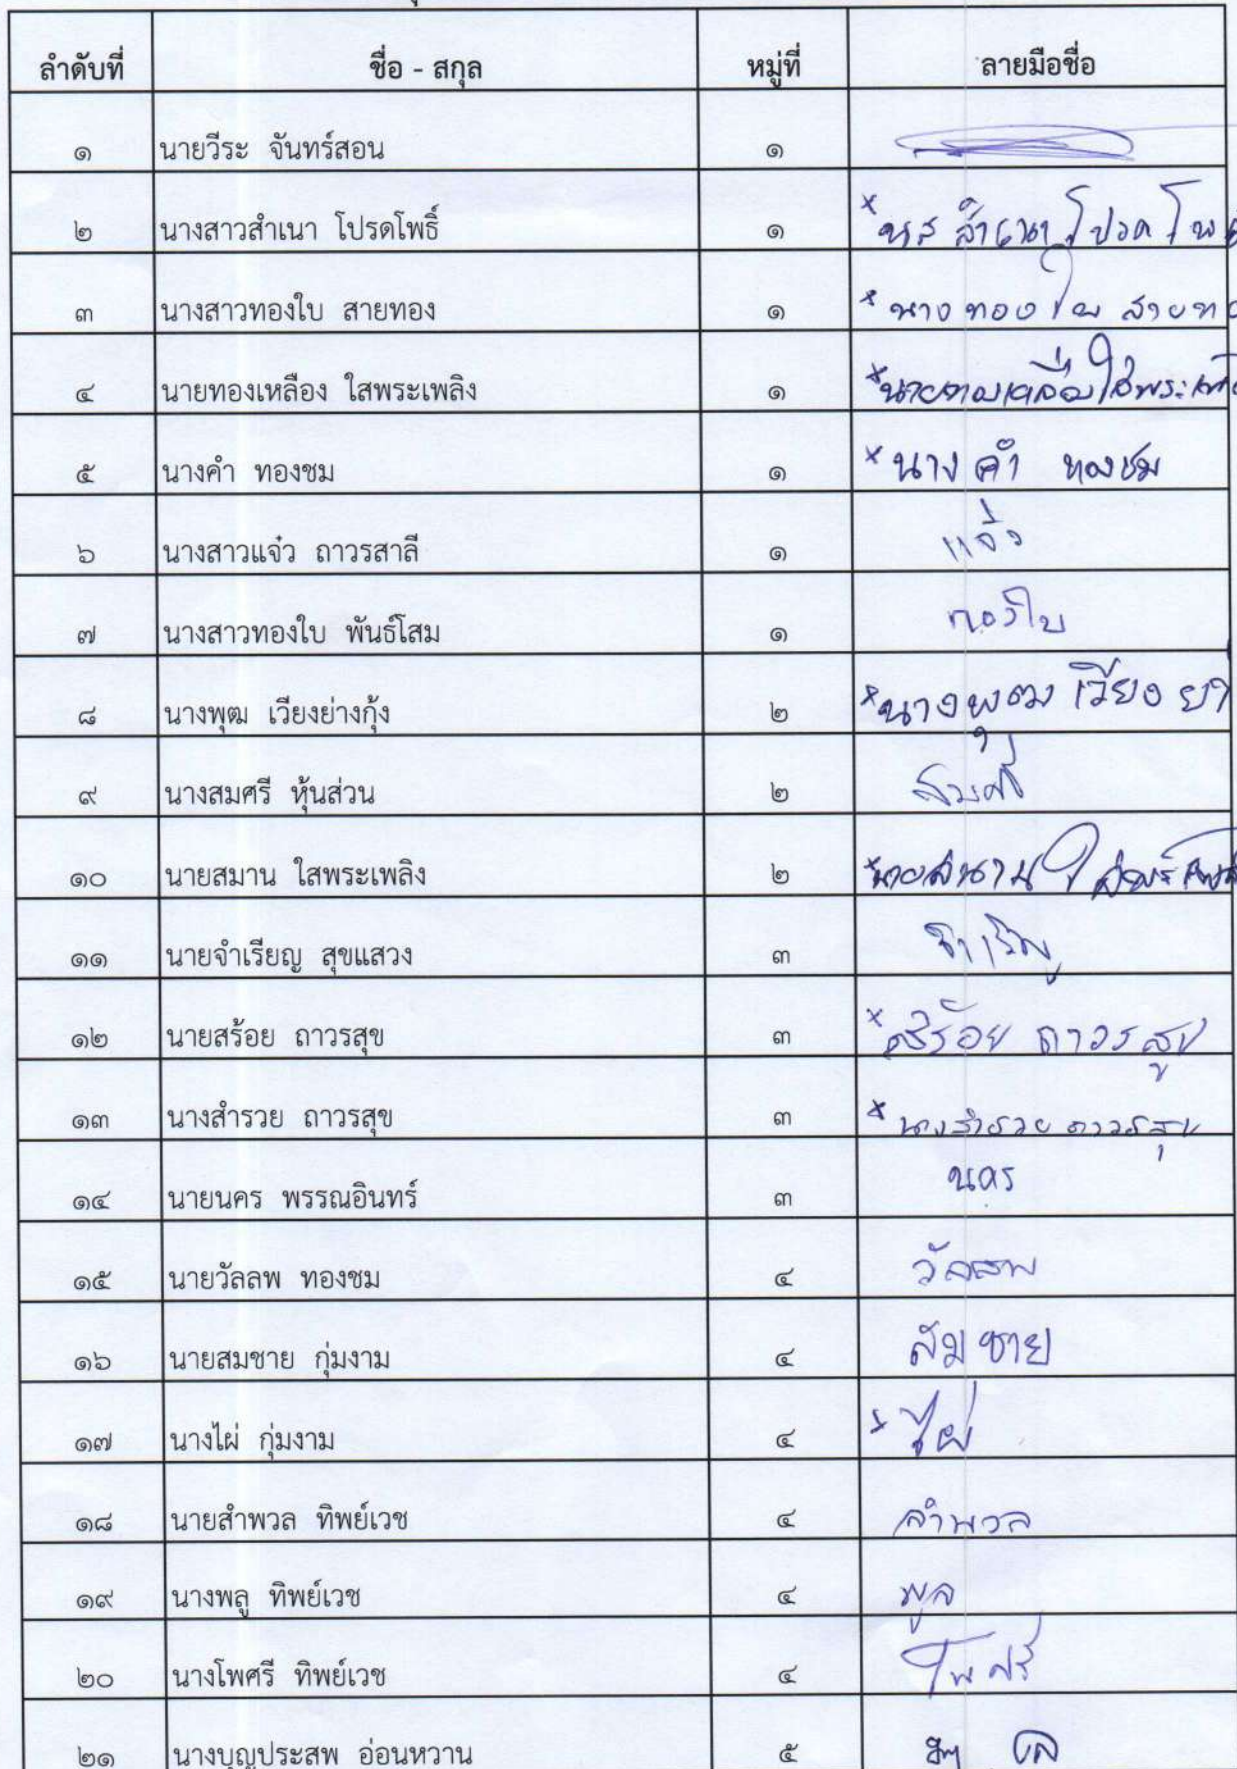 ลำดับที่ ชื่อ - สกุล หมู่ที่ ลายมือชื่อ
๑ นายวีระ จันทร์สอน ๑
๒ นางสาวสำเนา โปรดโพธิ์ ๑ × นส สำเนา โปรด
๓ นางสาวทองใบ สายทอง ๑ × นาง ทองใบ
๔ นายทองเหลือง ใสพระเพลิง ๑ ×
๕ นางคำ ทองชม ๑ × นาง คำ ทองชม
๖ นางสาวแจ๋ว ถาวรสาลี ๑ แจ๋ว
๗ นางสาวทองใบ พันธ์โสม ๑
๘ นางพุฒ เวียงย่างกุ้ง ๒ × นางพุฒ เวียง
๙ นางสมศรี หุ้นส่วน ๒ สมศรี
๑๐ นายสมาน ใสพระเพลิง ๒ ×
๑๑ นายจำเรียญ สุขแสวง ๓
๑๒ นายสร้อย ถาวรสุข ๓ × สร้อย ถาวรสุข
๑๓ นางสำรวย ถาวรสุข ๓ × นางสำรวย ถาวรสุข
๑๔ นายนคร พรรณอินทร์ ๓ นคร
๑๕ นายวัลลพ ทองชม ๔ วัลลพ
๑๖ นายสมชาย กุ่มงาม ๔ สมชาย
๑๗ นางไผ่ กุ่มงาม ๔ × ไผ่
๑๘ นายสำพวล ทิพย์เวช ๔ สำพวล
๑๙ นางพลู ทิพย์เวช ๔ พูล
๒๐ นางโพศรี ทิพย์เวช ๔ โพศรี
๒๑ นางบุญประสพ อ่อนหวาน ๕